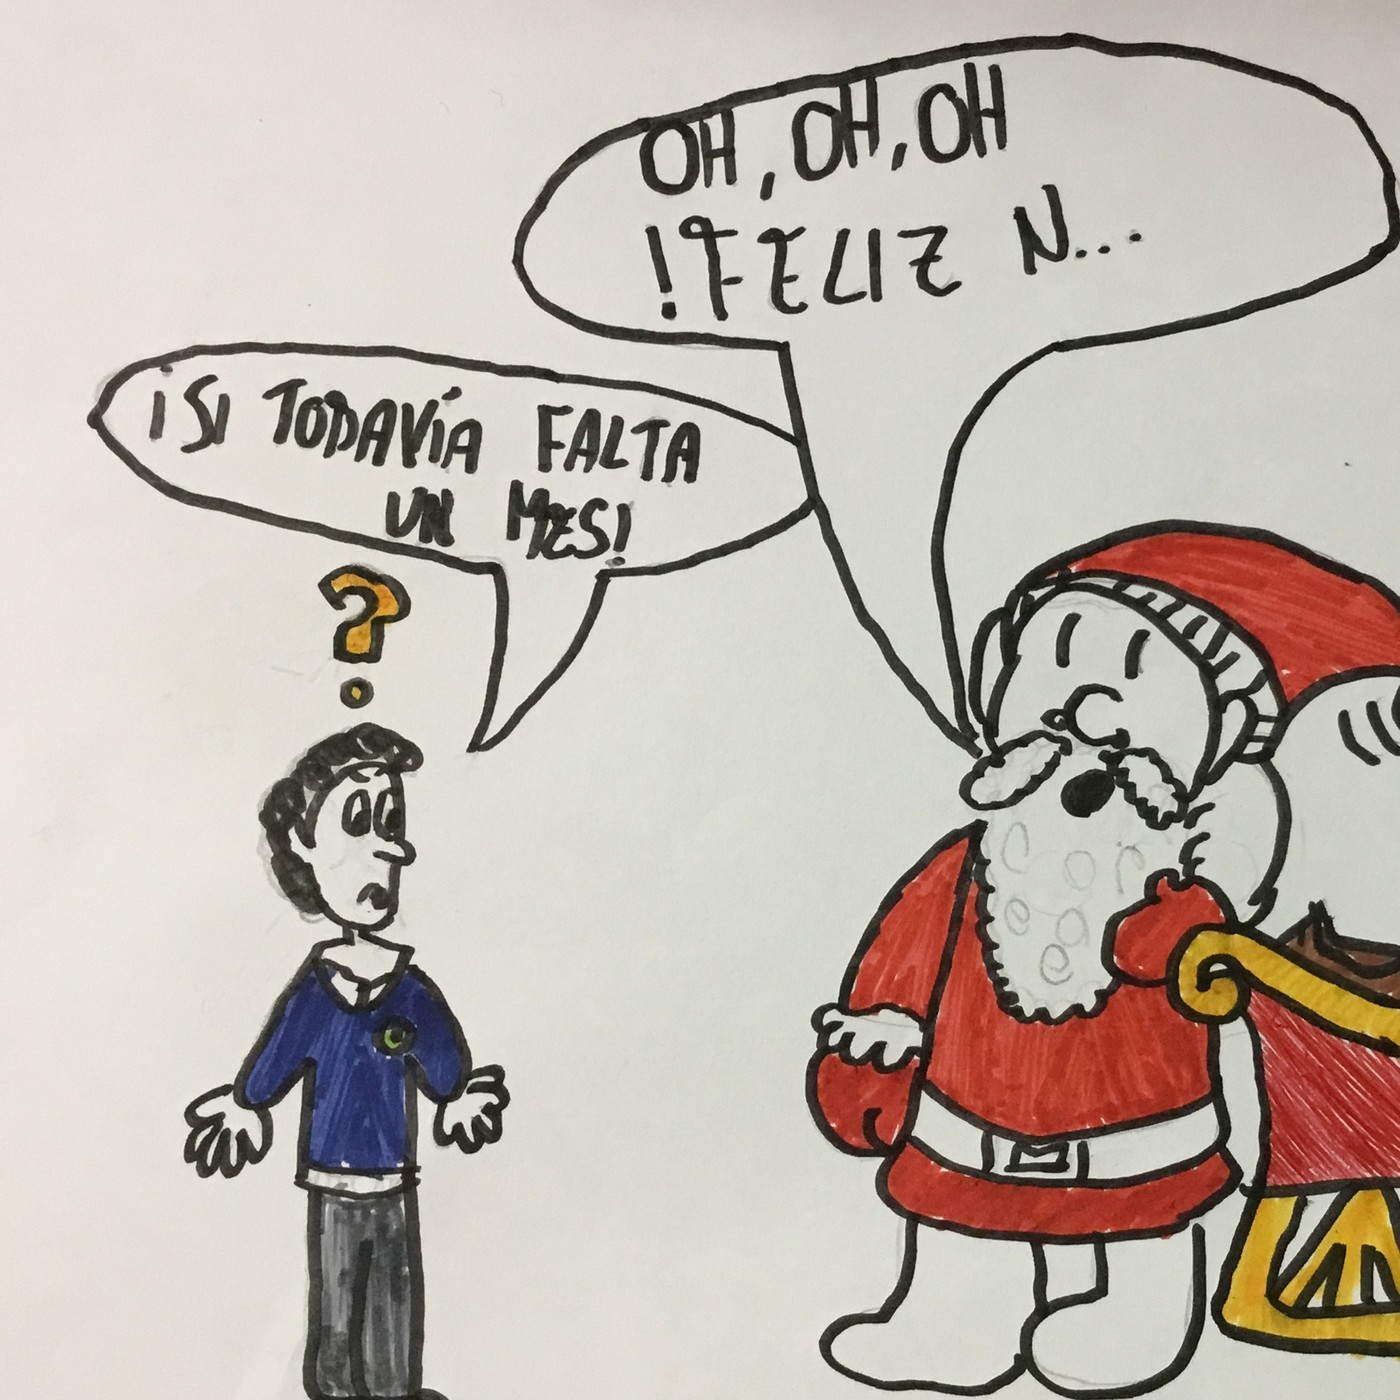 OH, OH, OH
!FELIZ N...
¡SI TODAVÍA FALTA
UN MES!
?